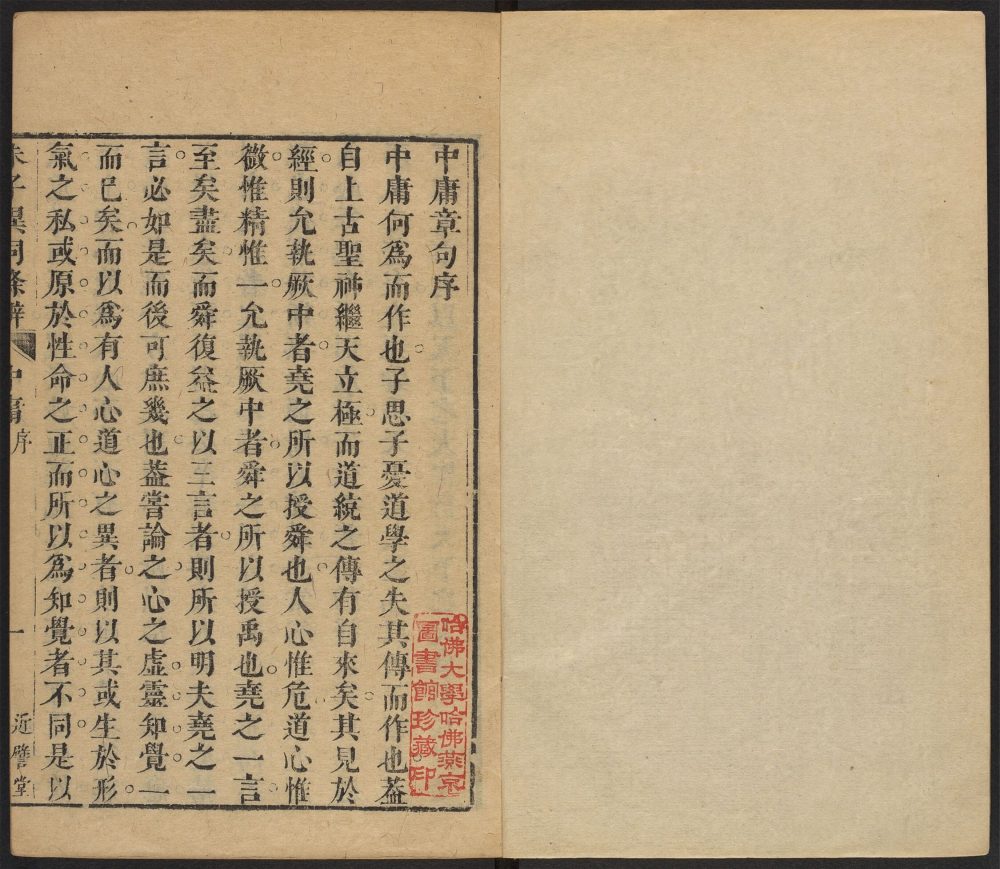 中庸章句序
中庸何爲而作也子思子憂道學之失其傳而作也葢
自上古聖神繼天立極而道統之傳有自來矣其見於
經則允執厥中者堯之所以授舜也人心惟危道心惟
微惟精惟一允執厥中者舜之所以授禹也堯之一言
至矣盡矣而舜復益之以三言者則所以明夫堯之一
言必如是而後可庶幾也葢嘗論之心之虛靈知覺一
而已矣而以爲有人心道心之異者則以其或生於形
氣之私或原於性命之正而所以爲知覺者不同是以
朱子異同條辨 中庸 序 一 近譬堂
哈佛大學哈佛燕京
圖書館珍藏印